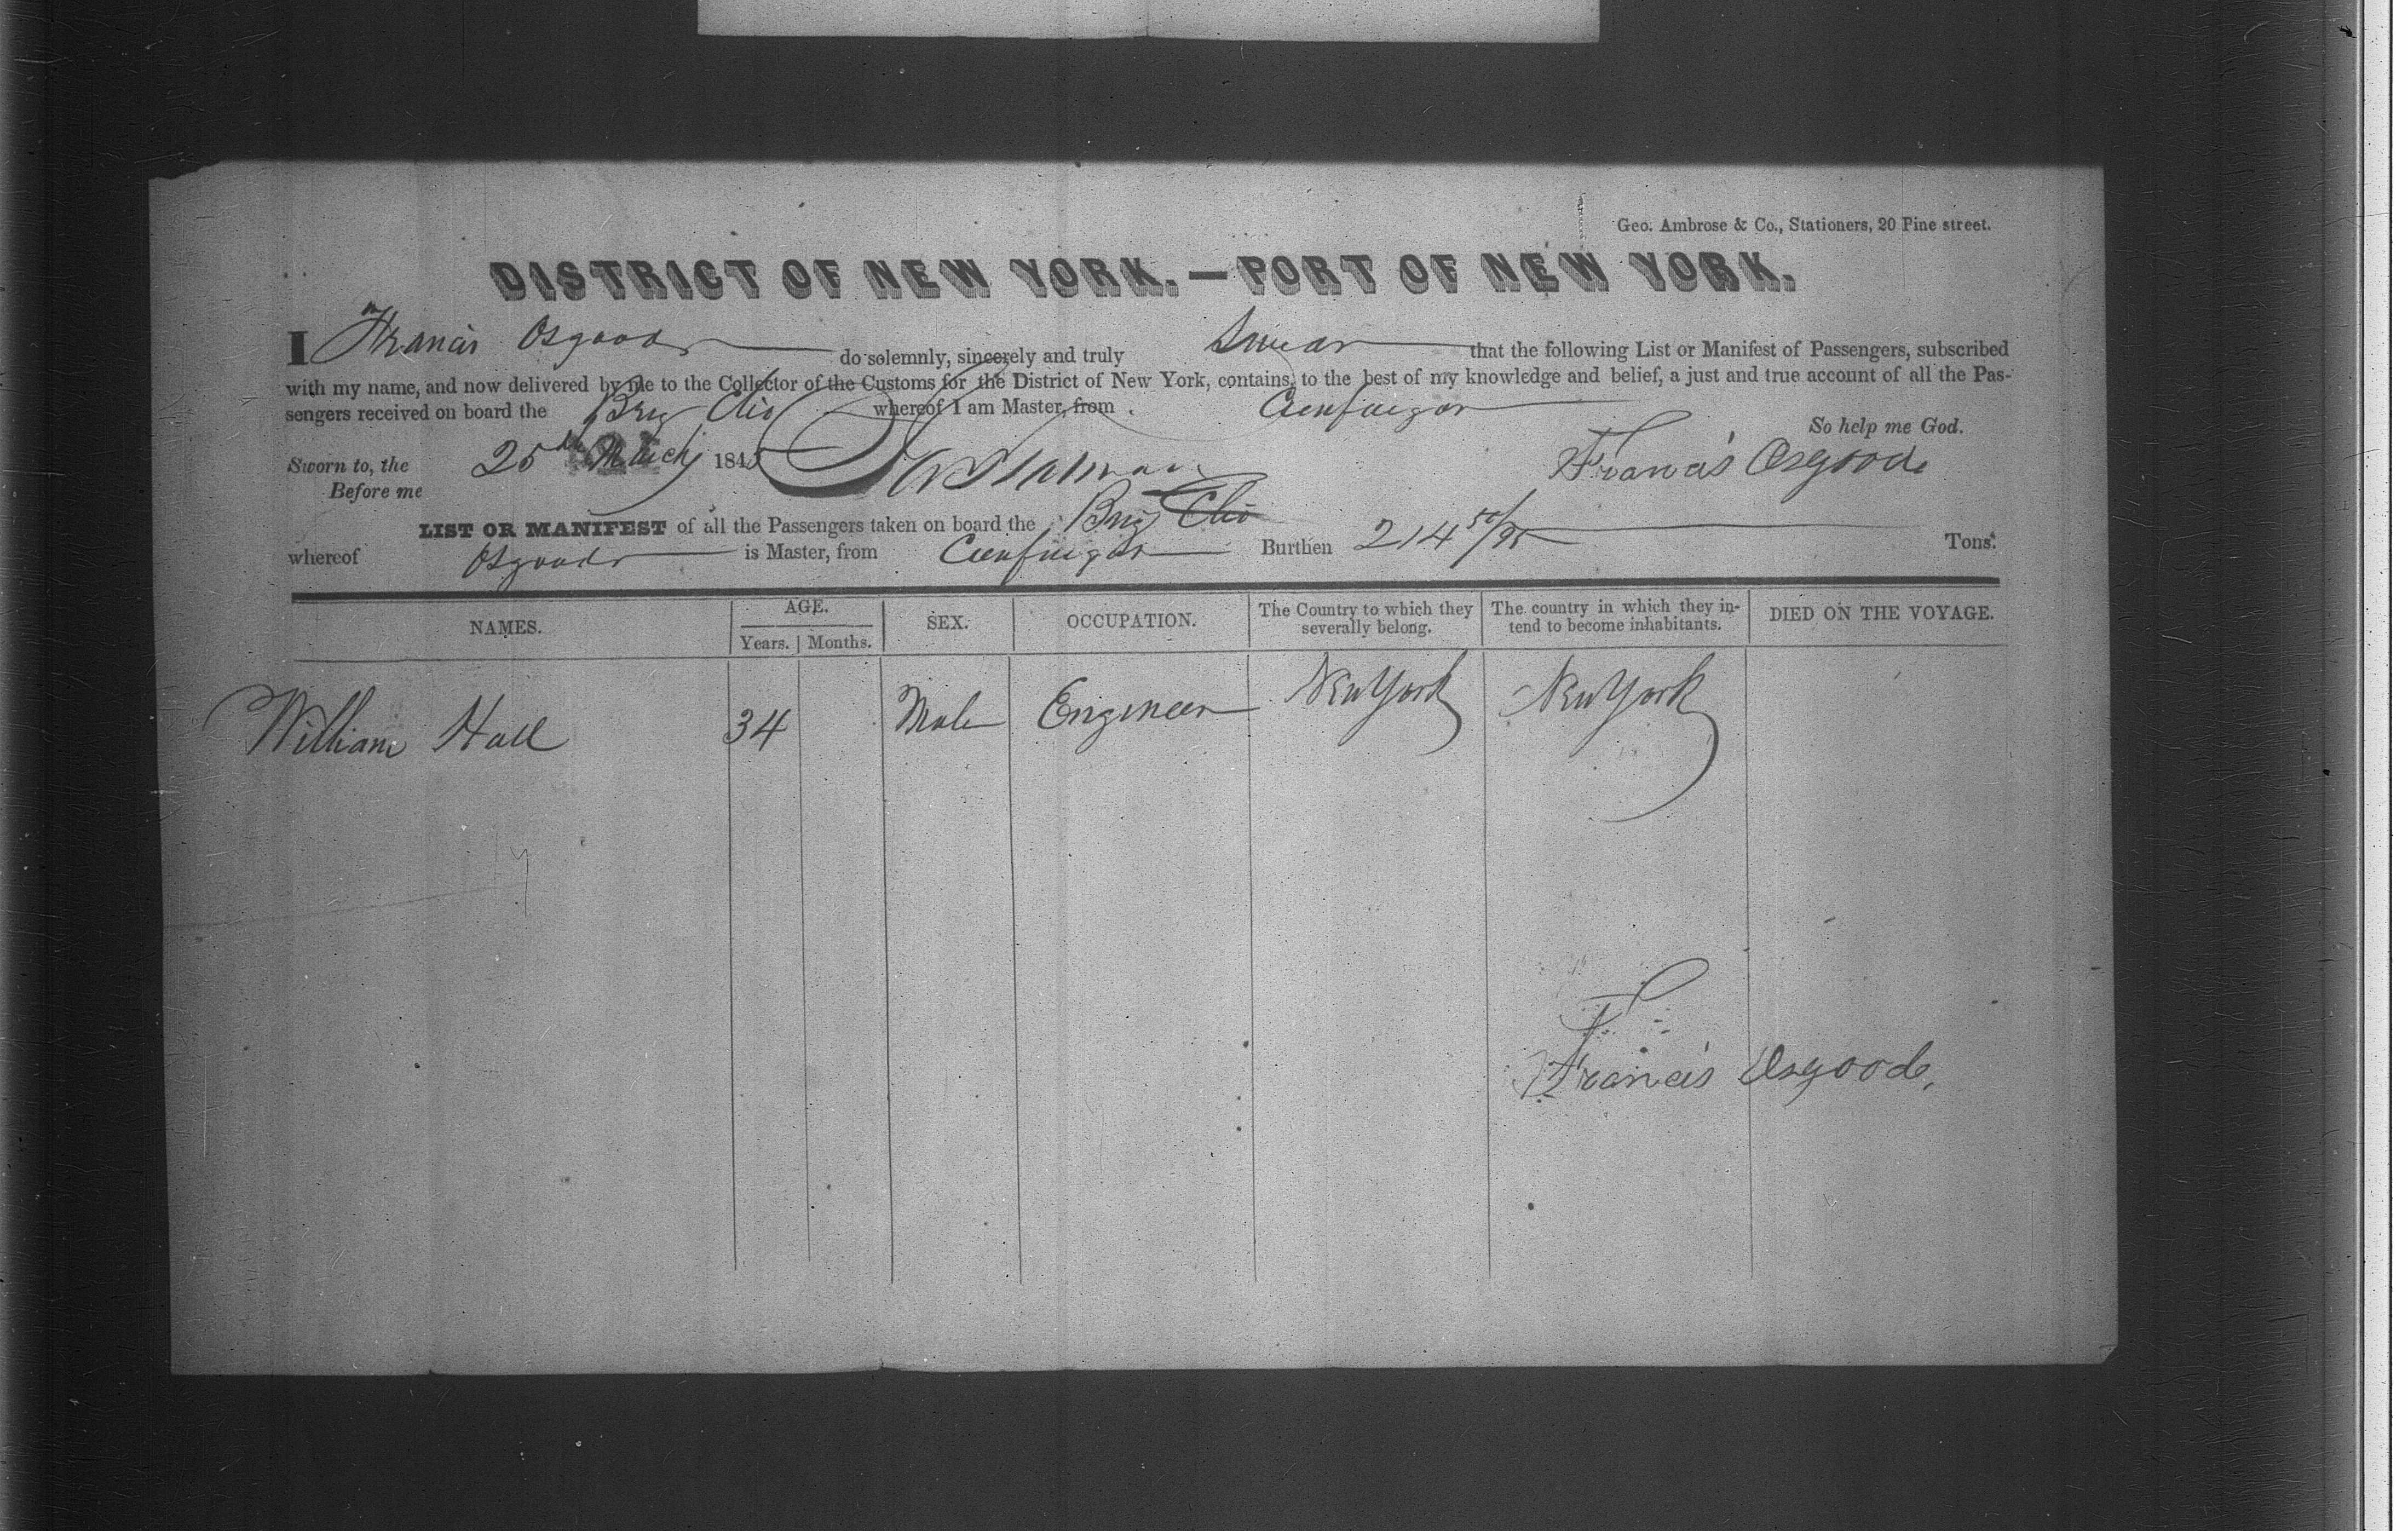 Geo. Ambrose & Co., Stationers, 20 Pine street.
DISTRICT OF NEW YORK.—PORT OF NEW YORK.
I Francis Osgood do solemnly, sincerely and truly Swear that the following List or Manifest of Passengers, subscribed
with my name, and now delivered by me to the Collector of the Customs for the District of New York, contains, to the best of my knowledge and belief, a just and true account of all the Pas-
sengers received on board the Brig Clio whereof I am Master, from Cienfuegos
So help me God.
Sworn to, the 25th March 1845 Francis Osgood
Before me
LIST OR MANIFEST of all the Passengers taken on board the Brig Clio
whereof Osgood is Master, from Cienfuegos Burthen 214 50/95 Tons.
NAMES. AGE. SEX. OCCUPATION. The Country to which they severally belong. The country in which they in-tend to become inhabitants. DIED ON THE VOYAGE.
Years. Months.
William Hall 34 Male Engineer New York New York
Francis Osgood